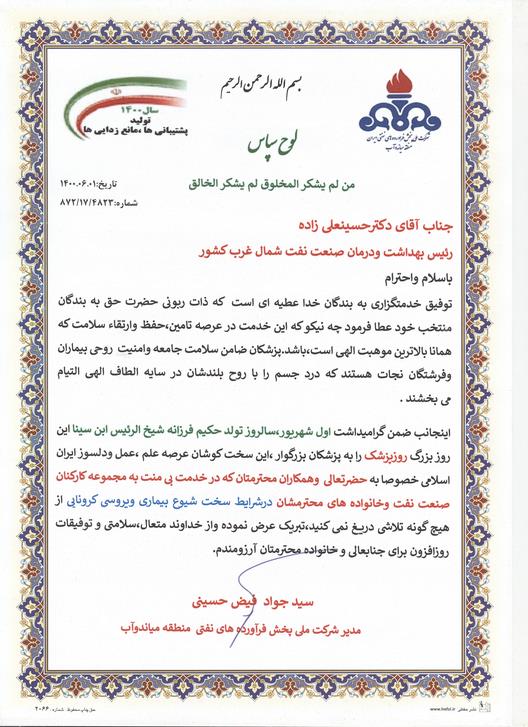 بسم الله الرحمن الرحیم
سال ۱۴۰۰
تولید
پشتیبانی ها ،مانع زدایی ها
شرکت ملی پخش فرآورده‌های نفتی ایران
منطقه میاندوآب
لوح سپاس
من لم یشکر المخلوق لم یشکر الخالق
تاریخ:۱۴۰۰.۰۶.۰۱
شماره:۸۷۲/۱۷/۴۸۲۳
جناب آقای دکترحسینعلی زاده
رئیس بهداشت ودرمان صنعت نفت شمال غرب کشور
باسلام واحترام
توفیق خدمتگزاری به بندگان خدا عطیه ای است که ذات ربوبی حضرت حق به بندگان
منتخب خود عطا فرمود چه نیکو که این خدمت در عرصه تامین،حفظ وارتقاء سلامت که
همانا بالاترین موهبت الهی است،باشد.پزشکان ضامن سلامت جامعه وامنیت روحی بیماران
وفرشتگان نجات هستند که درد جسم را با روح بلندشان در سایه الطاف الهی التیام
می بخشند .
اینجانب ضمن گرامیداشت اول شهریور،سالروز تولد حکیم فرزانه شیخ الرئیس ابن سینا این
روز بزرگ روزپزشک را به پزشکان بزرگوار ،این سخت کوشان عرصه علم ،عمل ودلسوز ایران
اسلامی خصوصا به حضرتعالی وهمکاران محترمتان که در خدمت بی منت به مجموعه کارکنان
صنعت نفت وخانواده های محترمشان درشرایط سخت شیوع بیماری ویروسی کرونایی از
هیچ گونه تلاشی دریغ نمی کنید،تبریک عرض نموده واز خداوند متعال،سلامتی و توفیقات
روزافزون برای جنابعالی و خانواده محترمتان آرزومندم.
سید جواد فیض حسینی
مدیر شرکت ملی پخش فرآورده های نفتی منطقه میاندوآب
حق چاپ محفوظ شماره ۲۰۶۶
www.hafzi.ir